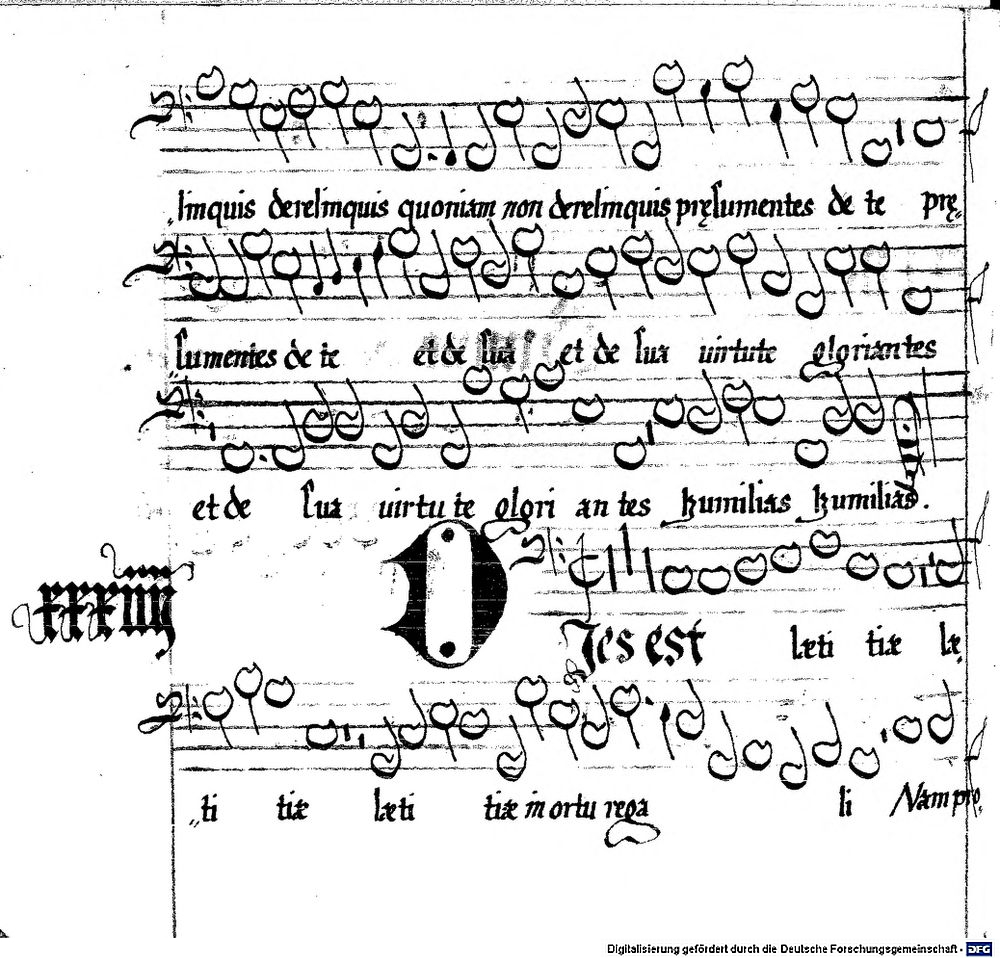 linquis derelinquis quoniam non derelinquis pręsumentes de te prę„
„sumentes de te et de sua et de sua uirtute gloriantes
et de sua uirtute glori an tes humilias humilias.
xxxiiij
DIes est læti tiæ læ„
„ti tiæ læti tiæ in ortu rega li Nam pro„
Digitalisierung gefördert durch die Deutsche Forschungsgemeinschaft - DFG